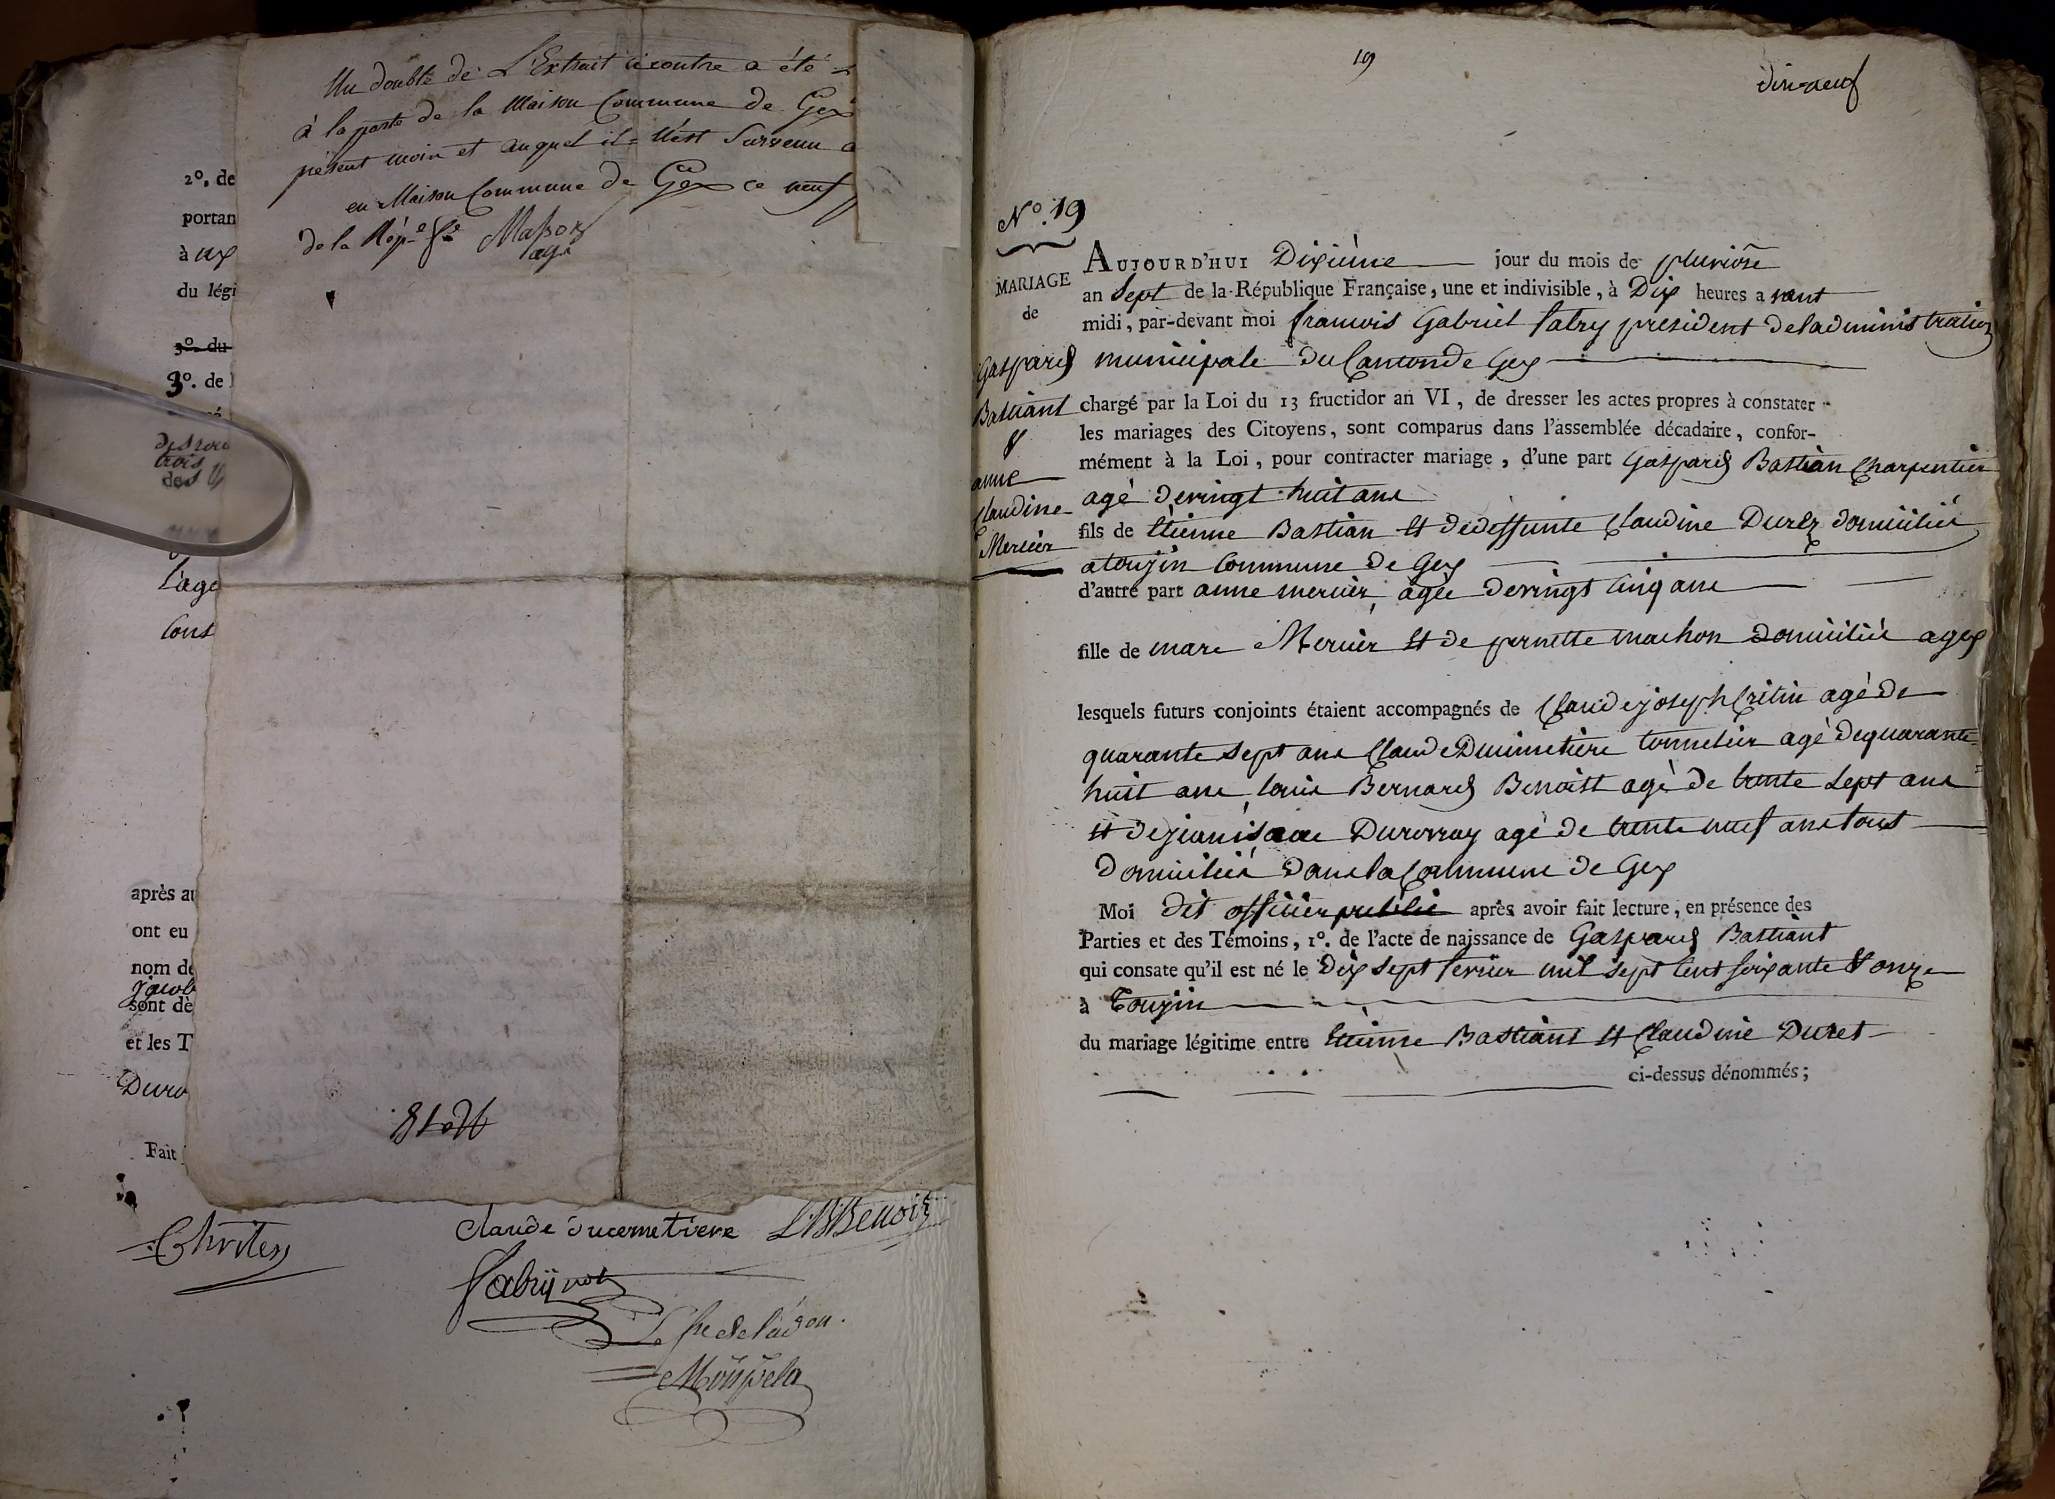 Un double de L'Extrait cicontre a été
à la porte de la Maison Commune de Gex
présent mois et auquel il n'est Survenu
en Maison Commune de Gex ce neuf
de la Rép.e f.se Masson
agt
2º. de
portan
à Gex
du légi
3º. du
3º. de
trois
des
l'age
Cons
après au
ont eu
nom de
Jacob
sont dè
et les T
Duro
Fait
Nº 18
Claude ducemetiere L B Benoit
Fabry
Mouspela
19
dix-neuf
Nº. 19
MARIAGE
de
Gaspard
Bastiant
&
anne
Claudine
Mercier
AUJOURD'HUI Dixième jour du mois de pluviose
an Sept de la République Française, une et indivisible, à Dix heures avant
midi, par-devant moi francois Gabriel fabry president deladministration
municipale du Canton de Gex
chargé par la Loi du 13 fructidor an VI, de dresser les actes propres à constater
les mariages des Citoyens, sont comparus dans l'assemblée décadaire, confor-
mément à la Loi, pour contracter mariage, d'une part Gaspard Bastian Charpentier
agé devingt huit ans
fils de Etienne Bastian et dedeffunte Claudine Durez domicilié
atoujin Commune de Gex
d'autre part anne mercier, agée devingt cinq ans
fille de marc Mercier et de pernette machon domicilié agex
lesquels futurs conjoints étaient accompagnés de Claudejoseph Critin agé de
quarante sept ans Claude Ducimetière tonnelier agé dequarante
huit ans, louis Bernard Benoist agé de trente sept ans
et dejeanisaac Durovray agé de trente neuf ans tous
domiciliés dans la Commune de Gex
Moi dit officier public après avoir fait lecture, en présence des
Parties et des Témoins, 1º. de l'acte de naissance de Gaspard Bastiant
qui consate qu'il est né le Dix sept fevrier mil sept cent soixante & onze
à Toujin
du mariage légitime entre Etienne Bastiant et Claudine Duret
ci-dessus dénommés;